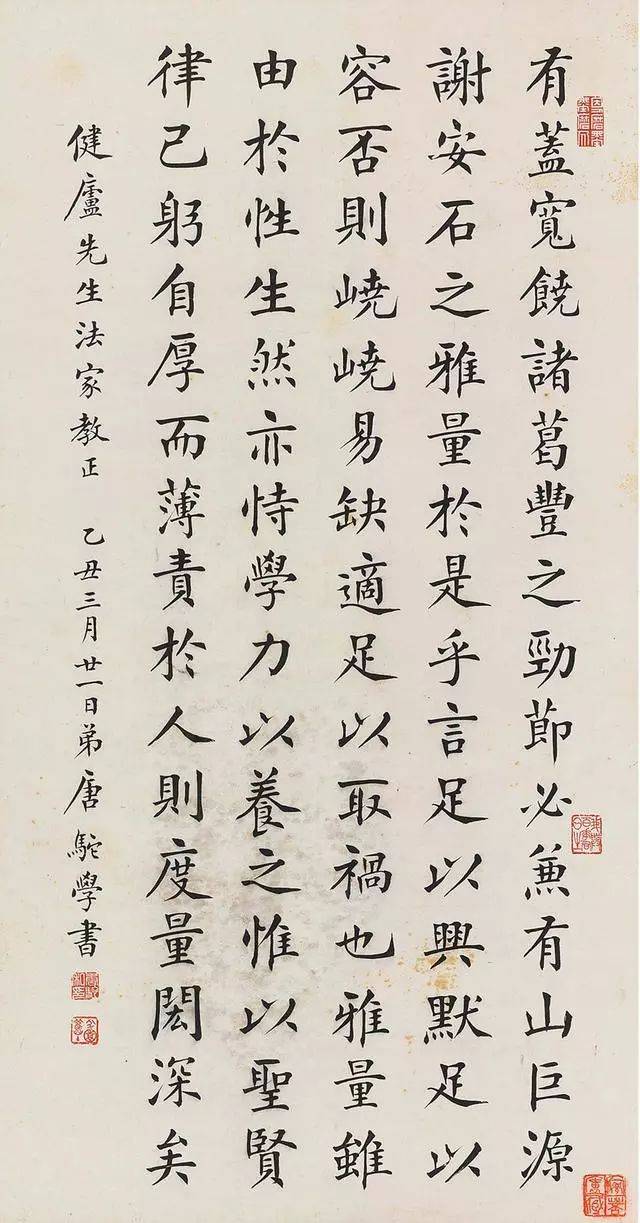 有蓋寬饒諸葛豐之勁節必兼有山巨源
謝安石之雅量於是乎言足以興默足以
容否則嶢嶢易缺適足以取禍也雅量雖
由於性生然亦恃學力以養之惟以聖賢
律己躬自厚而薄責於人則度量閎深矣
健廬先生法家教正 乙丑三月廿一日弟唐駝學書